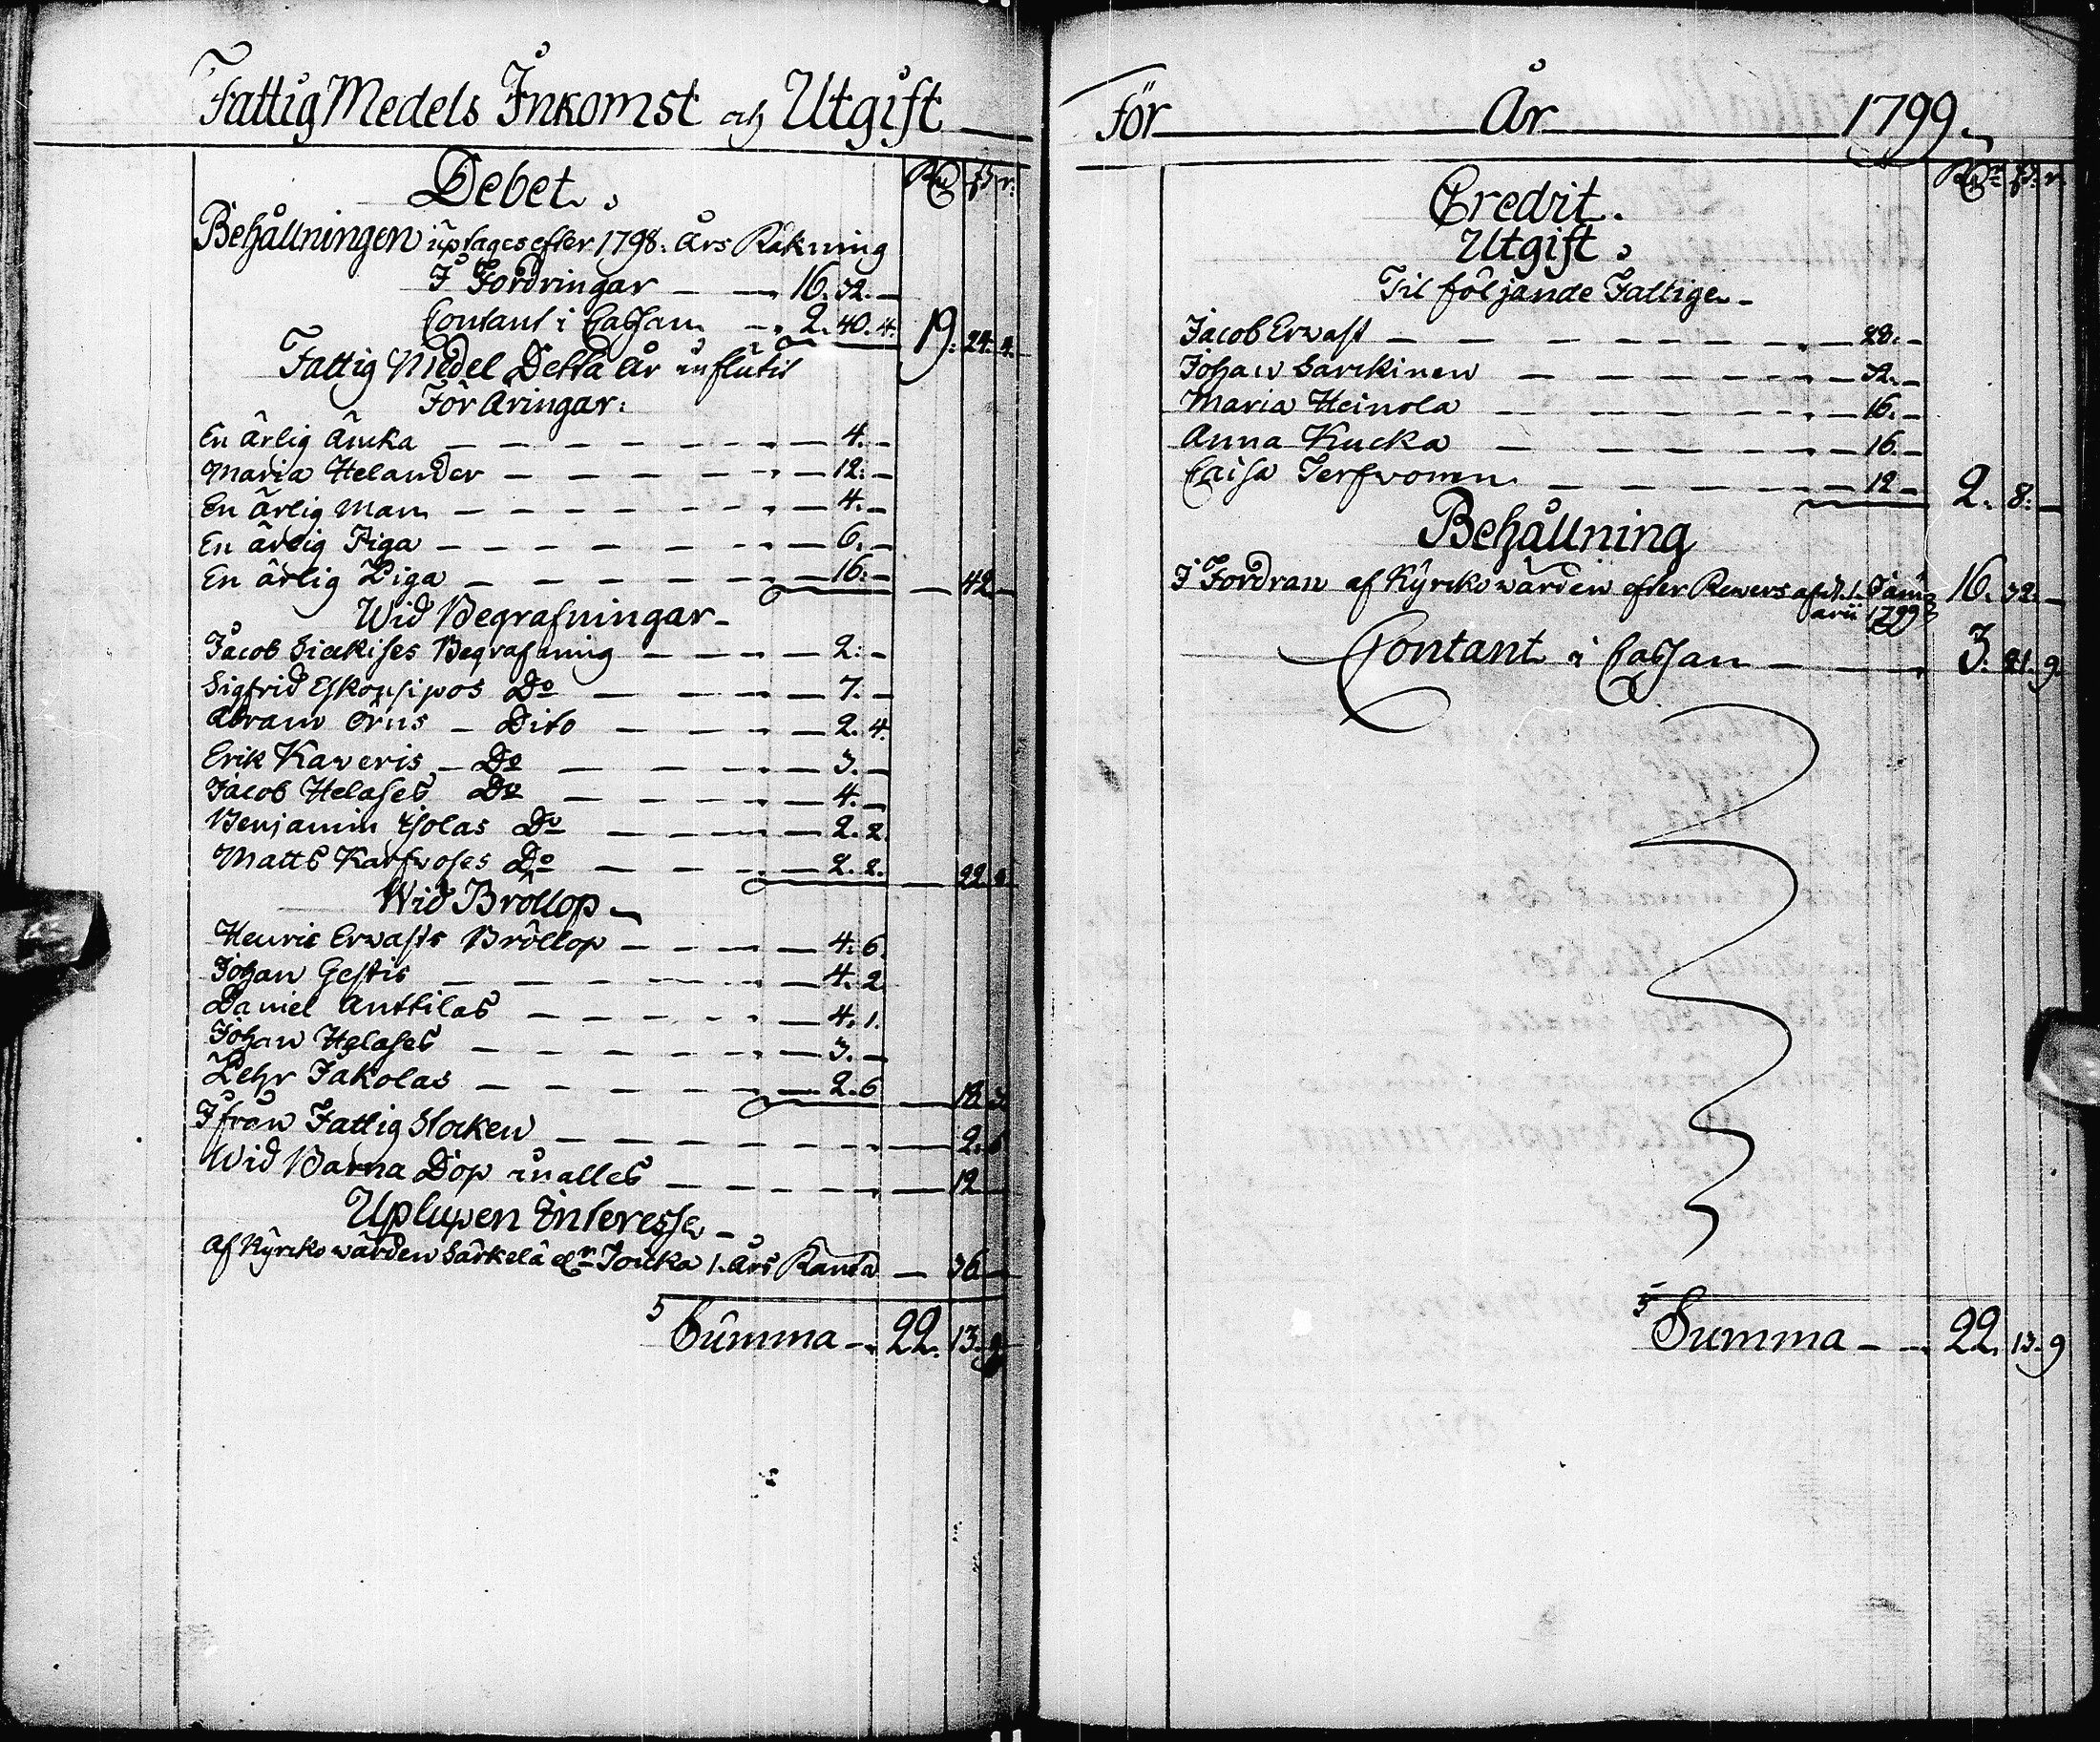 Fattig Medels Inkomst och Utgift
Debet. Rd ß r.
Behållningen uptages efter 1798. Års Räkning
I Fordringar — — 16. 32. —
Contant i Cassan — 2. 40. 4. 19. 24. 4.
Fattig Medel Detta År influtit
Föräringar:
En ärlig Äncka — 4. —
Maria Helander — 12: —
En ärlig Man — 4. —
En ärlig Piga — 6. —
En ärlig Piga — 16: — — 42 —
Wid Begrafningar —
Jacob Sickises Begrafning — 2: —
Sigfrid Eskopsipos Do — 7. —
Abram Örns — Dito — 2. 4.
Erik Kaweris — Do — 3. —
Jacob Helases Do — 4. —
Benjamin Isolas Do — 2. 2.
Matts Karfwoses Do — 2. 2. — 22. 8.
Wid Bröllop —
Henric Erwasts Bröllop — 4. 6.
Johan Gestis — 4. 2.
Daniel Anttilas — 4. 1.
Johan Helases — 3. —
Pehr Jakolas — 2. 6 — 18. 3.
Ifrån Fattig Stocken — 2. 6
Wid Barna Dop inalles — 12 —
Uplupen Interesse —
Af Kyrcko wärden Särkelä elr Joucka 1. Års Ränta — 36 —
Summa — 22. 13. 9.
För År 1799.
Credit. Rdr ß. r.
Utgift.
Til följande Fattige —
Jacob Erwast — 28. —
Johan Sarckinen — 32. —
Maria Heinola — 16. —
Anna Kucka — 16. —
Caisa Terfwonen — 12 — 2. 8. —
Behållning
I Fordran af Kyrcko wärden efter Rewers af d. 1. Janu 16. 32. —
arii 1799
Contant i Cassan — 3. 21. 9.
Summa — 22. 13. 9